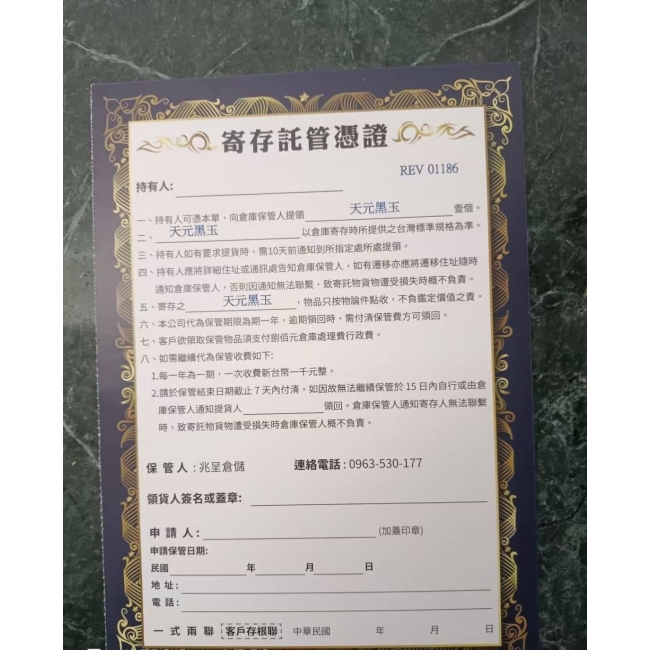 寄存託管憑證
REV 01186
持有人:
一、持有人可憑本單,向倉庫保管人提領 天元黑玉 壹個。
二、 天元黑玉 以倉庫寄存時所提供之台灣標準規格為準。
三、持有人如有要求提貨時,需10天前通知到所指定處所處提領。
四、持有人應將詳細住址或通訊處告知倉庫保管人,如有遷移亦應將遷移住址隨時
通知倉庫保管人,否則因通知無法聯繫,致寄託物貨物遭受損失時概不負責。
五、寄存之 天元黑玉 ,物品只按物論件點收,不負鑑定價值之責。
六、本公司代為保管期限為期一年,逾期領回時,需付清保管費方可領回。
七、客戶欲領取保管物品須支付捌佰元倉庫處理費行政費。
八、如需繼續代為保管收費如下:
1.每一年為一期,一次收費新台幣一千元整。
2.請於保管結束日期截止7天內付清,如因故無法繼續保管於15日內自行或由倉
庫保管人通知提貨人 領回。倉庫保管人通知寄存人無法聯繫
時,致寄託物貨物遭受損失時倉庫保管人概不負責。
保管人:兆呈倉儲 連絡電話:0963-530-177
領貨人簽名或蓋章:
申請人: (加蓋印章)
申請保管日期:
民國 年 月 日
地址:
電話:
一式兩聯 客戶存根聯 中華民國 年 月 日